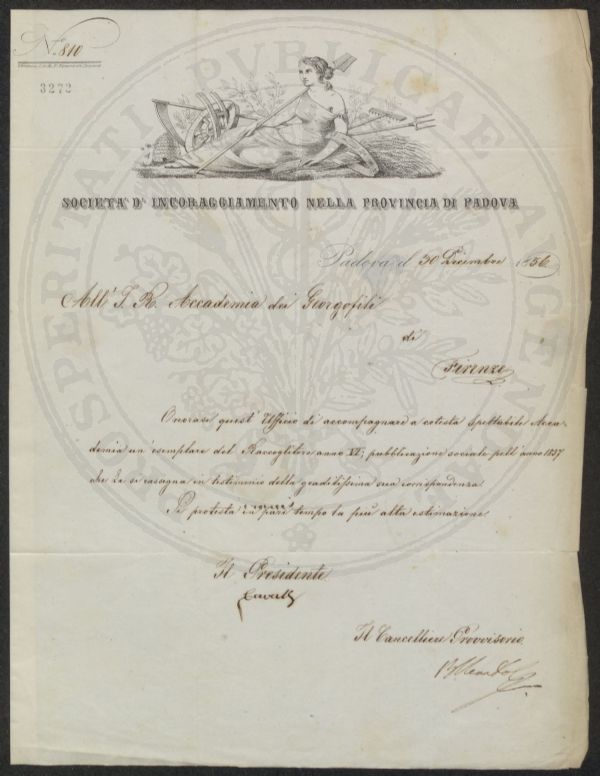 N.º 810
3272
SOCIETA' D' INCORAGGIAMENTO NELLA PROVINCIA DI PADOVA
Padova il 30 Dicembre 1856
All' I. R. Accademia dei Georgofili
di
Firenze
Onorasi quest' Ufficio di accompagnare a cotesta Spettabile Acca-
demia un' esemplare del Raccoglitore anno VI; pubblicazione sociale pell' anno 1857
che Le si rasegna in testimonio della graditissima sua corrispondenza.
Si protesta in pari tempo la più alta estimazione.
Il Presidente
Il Cancelliere Provvisorio
PROSPERITATI PUBLICAE AUGENDAE